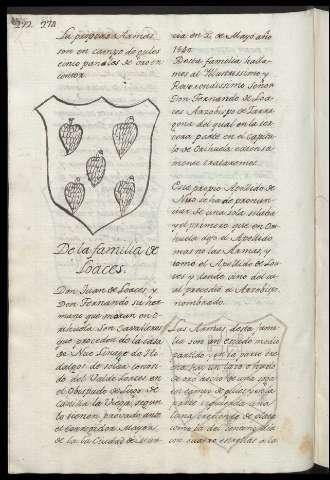 272. 278
La propias Armas
son en campo de gules
cinco panales de oro en
De la familia de
Loaces.
Don Juan de Loaces, y
Don Fernando su her-
mano que moran en O-
rihuela son Cavalleros
que proceden de la casa
de Nuo Linage de Hi-
dalgos de solar conoci-
do del Valde Loaces en
el Obispado de Lugo de
Castilla la Vieja, segun
la tienen, provado ante
el Corregidor Mayor
de la Ciudad de Mur-
cia en 2 de Mayo año
Desta familia halla-
mos al Illustrissimo y
Reverendissimo Señor
Don Fernando de Loa-
ces Arzobispo de Tarra-
gona del qual en la ter-
cera parte en el Capitu-
lo de Orihuela extensa-
mente trataremos.
Este propio Apellido de
Nuo se ha de pronun-
ciar de una sola silaba
y el primero que en O-
rihuela dejo el Apellido
mas no las Armas, y
tomo el Apellido de Loa-
ces y donde vino del va-
le procedio el Arzobispo
nombrado.
Las Armas desta fami-
lia son un escudo medio
partido en la parte
de oro
en campo de gules en la
parte
con cuatro estrellas a la